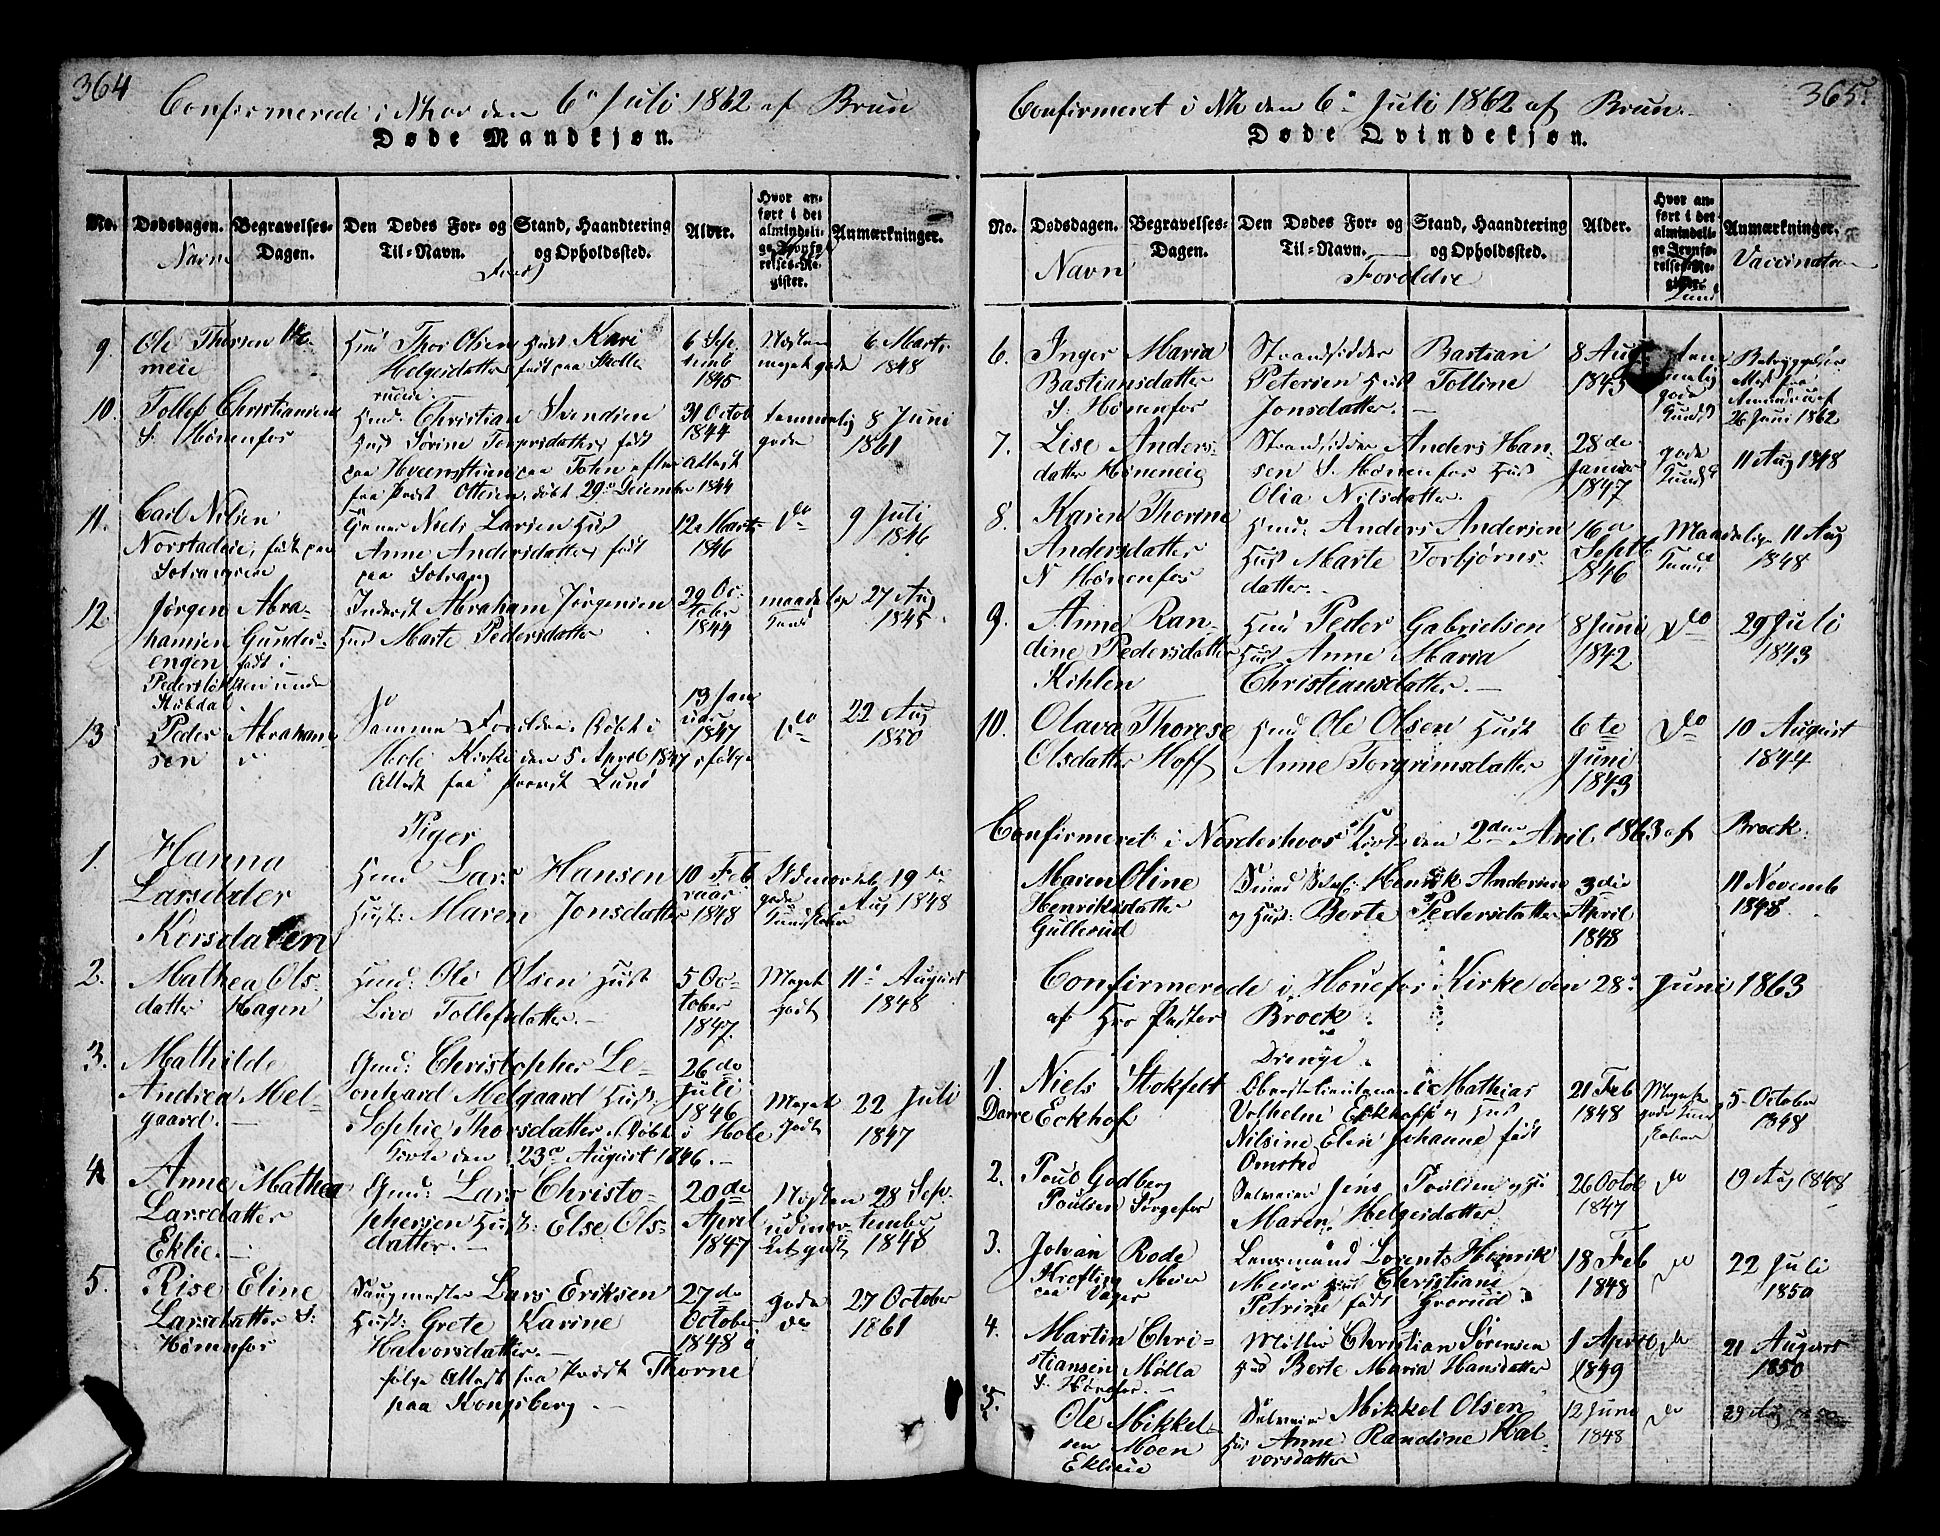 364
Confirmerede i Nhov den 6te Juli 1862 af Brun
Døde Mandkjøn.
No. Dødsdagen. Begravelses-Dagen. Den Dødes For- og Til-Navn. Stand, Haandtering og Opholdssted. Alder. Hvor anført i det almindelige Jevnførelses-Register. Anmærkninger.
Navn
9. Ole Thorsen
meie
Huusm. Thor Olsen Hust. Kari
Helgesdatter født paa
6 Sep
temb
1845
meget gode
6 Marts
1848
10. Tollef Christiansen
S: Hønenfos
Christian Svendsen
Hust Sørine født
paa paa Toten efter Attest
fra Præst Ottesen, døbt 29de December 1844
31 Octob
1844
temmelig
gode
8 Juni
1861
11. Carl Nilsen
Norstadeie, født paa
Niels Larsen Hust
Anne Andersdatter født
paa
12 Marts
1846
do
9 Juli
1846
12. Jørgen Abra-
hamsen Gunders-
engen født i
Inderst Abraham Jørgensen
Hust Marte Pedersdatter
29 Oc-
tober
1844
27 Aug
1845
13 Peder Abraham
sen
Samme Forældre. Døbt i
Hole Kirke den 5 April 1847 ifølge
Attest fra Provst Lund
13 Jan
uar
1847
do
22 Aug
1850
Piger
1. Hanna
Larsdatter
Korsdalen
Huusm Lars Hansen
Hust: Maren Jonsdatter
10 Feb
ruar
1848
gode
Kundskaber
19de
Aug 1848
2. Mathea Ols-
datter Hagen
Huusm: Ole Olsen Hust
Live Tollefsdatter.
5 Oc-
tober
1847.
Meget
godt
11te August
1848
3. Mathilde
Andrea Mel-
gaard.
Christopher Le-
onhard Melgaard Hust:
Sophie Thorsdatter. Døbt i Hole
Kirke den 23de August 1846.
26de
Juli
1846
Meget
godt
22 Juli
1847
4. Anne Mathea
Larsdatter
Eklie.
Lars Christo-
phersen Hust: Else Ols-
datter.
20de
April
1847
Næsten
udmær-
ket godt
28 Sep-
tember
1848
5. Rise Eline
Larsdatter S:
Hønenfos
Saugmester Lars Eriksen
Hust: Grete Karine
Halvorsdatter.
følge Attest fra Præst Thorne
paa Kongsberg.
27de
October
1848
gode
do
27 October
1861
365.
Confirmeret i Nh den 6te Juli 1862 af Brun.
Døde Qvindekjøn.
No. Dødsdagen. Begravelses-Dagen. Den Dødes For- og Til-Navn. Stand, Haandtering og Opholdssted. Alder. Hvor anført i det almindelige Jevnførelses-Register. Anmærkninger.
Navn Forældre
6. Inger Maria
Bastiansdatter
S: Hønenfos
Strandsidder Bastian
Petersen Hust Tolline
Jonsdatter.
8 Aug
26 Juni 1862
7. Lise Anders-
datter Høneneie
Strandsidder Anders Han-
sen S. Hønenfos Hust
Olia Nilsdatter.
28de
Januar
1847
gode
Kundsk
11 Aug 1848
8. Karen Thorine
Andersdatter
N Hønenfos
Huusm: Anders Andersen
Hust Marte Torbjørns-
datter.
16de
Septb
1846
Maadelige
Kunds
11 Aug
1848
9. Anne Ran-
dine Pedersdatter
Kihlen
Huusm Peder Gabrielsen
Hust Anne Maria
Christiansdatter.
8 Juni
1842
do
29 Juli
1843
10. Olava Thorese
Olsdatter Hoff
Huusm Ole Olsen Hust
Anne Torgrimsdatter
6te
Juni
1843
do
10 August
1844
Confirmeret i Norderhovs Kirke den 2den April 1863 af Brock.
Maren Oline
Henriksdatter
Gullerud
Henrik Andersen
og Hust: Berte Pedersdatter
3die
April
1848
11 Novemb
1848
Confirmerede i Hønefos Kirke den 28de Juni 1863
af Hrr Pastor Brock
Drenge
1. Niels Stokfelt
Darre Eckhof
Oberstlieutenant Mathias
Vilhelm Eckhoff og Hust
Nilsine Elen Johanne født
Omsted
21 Feb
1848
Meget
gode Kund
skaber
5 October
1848
2. Poul Godberg
Poulsen Sørgefos
Selveier Jens Poulsen og Hu
Maren Helgesdatter
26 Octob
1847
do
19 Aug 1848
3. Johan Rode
Krefting Meier
paa Vager
Lensmand Lorents Henrik
Meier Hust Christiane
Petrine født Grorud
18 Feb
1848
do
22 Juli
1850
4. Martin Chri-
stiansen Mølla
S: Hønefos.
Møller Christian Sørensen
Hust Berte Maria Hansdatter
1 April
1849
do
21 August
1850
5. Ole Mikkel-
sen Moen
Eklieie
Selveier Mikkel Olsen
Hus Anne Randine Hal-
vorsdatter
12 Juni
1848
do
29 Aug